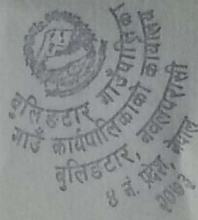 बुलिङटार गाउँपालिका
गाउँ कार्यपालिकाको कार्यालय
बुलिङटार, नवलपरासी
४ नं. प्रदेश, नेपाल
२०७३